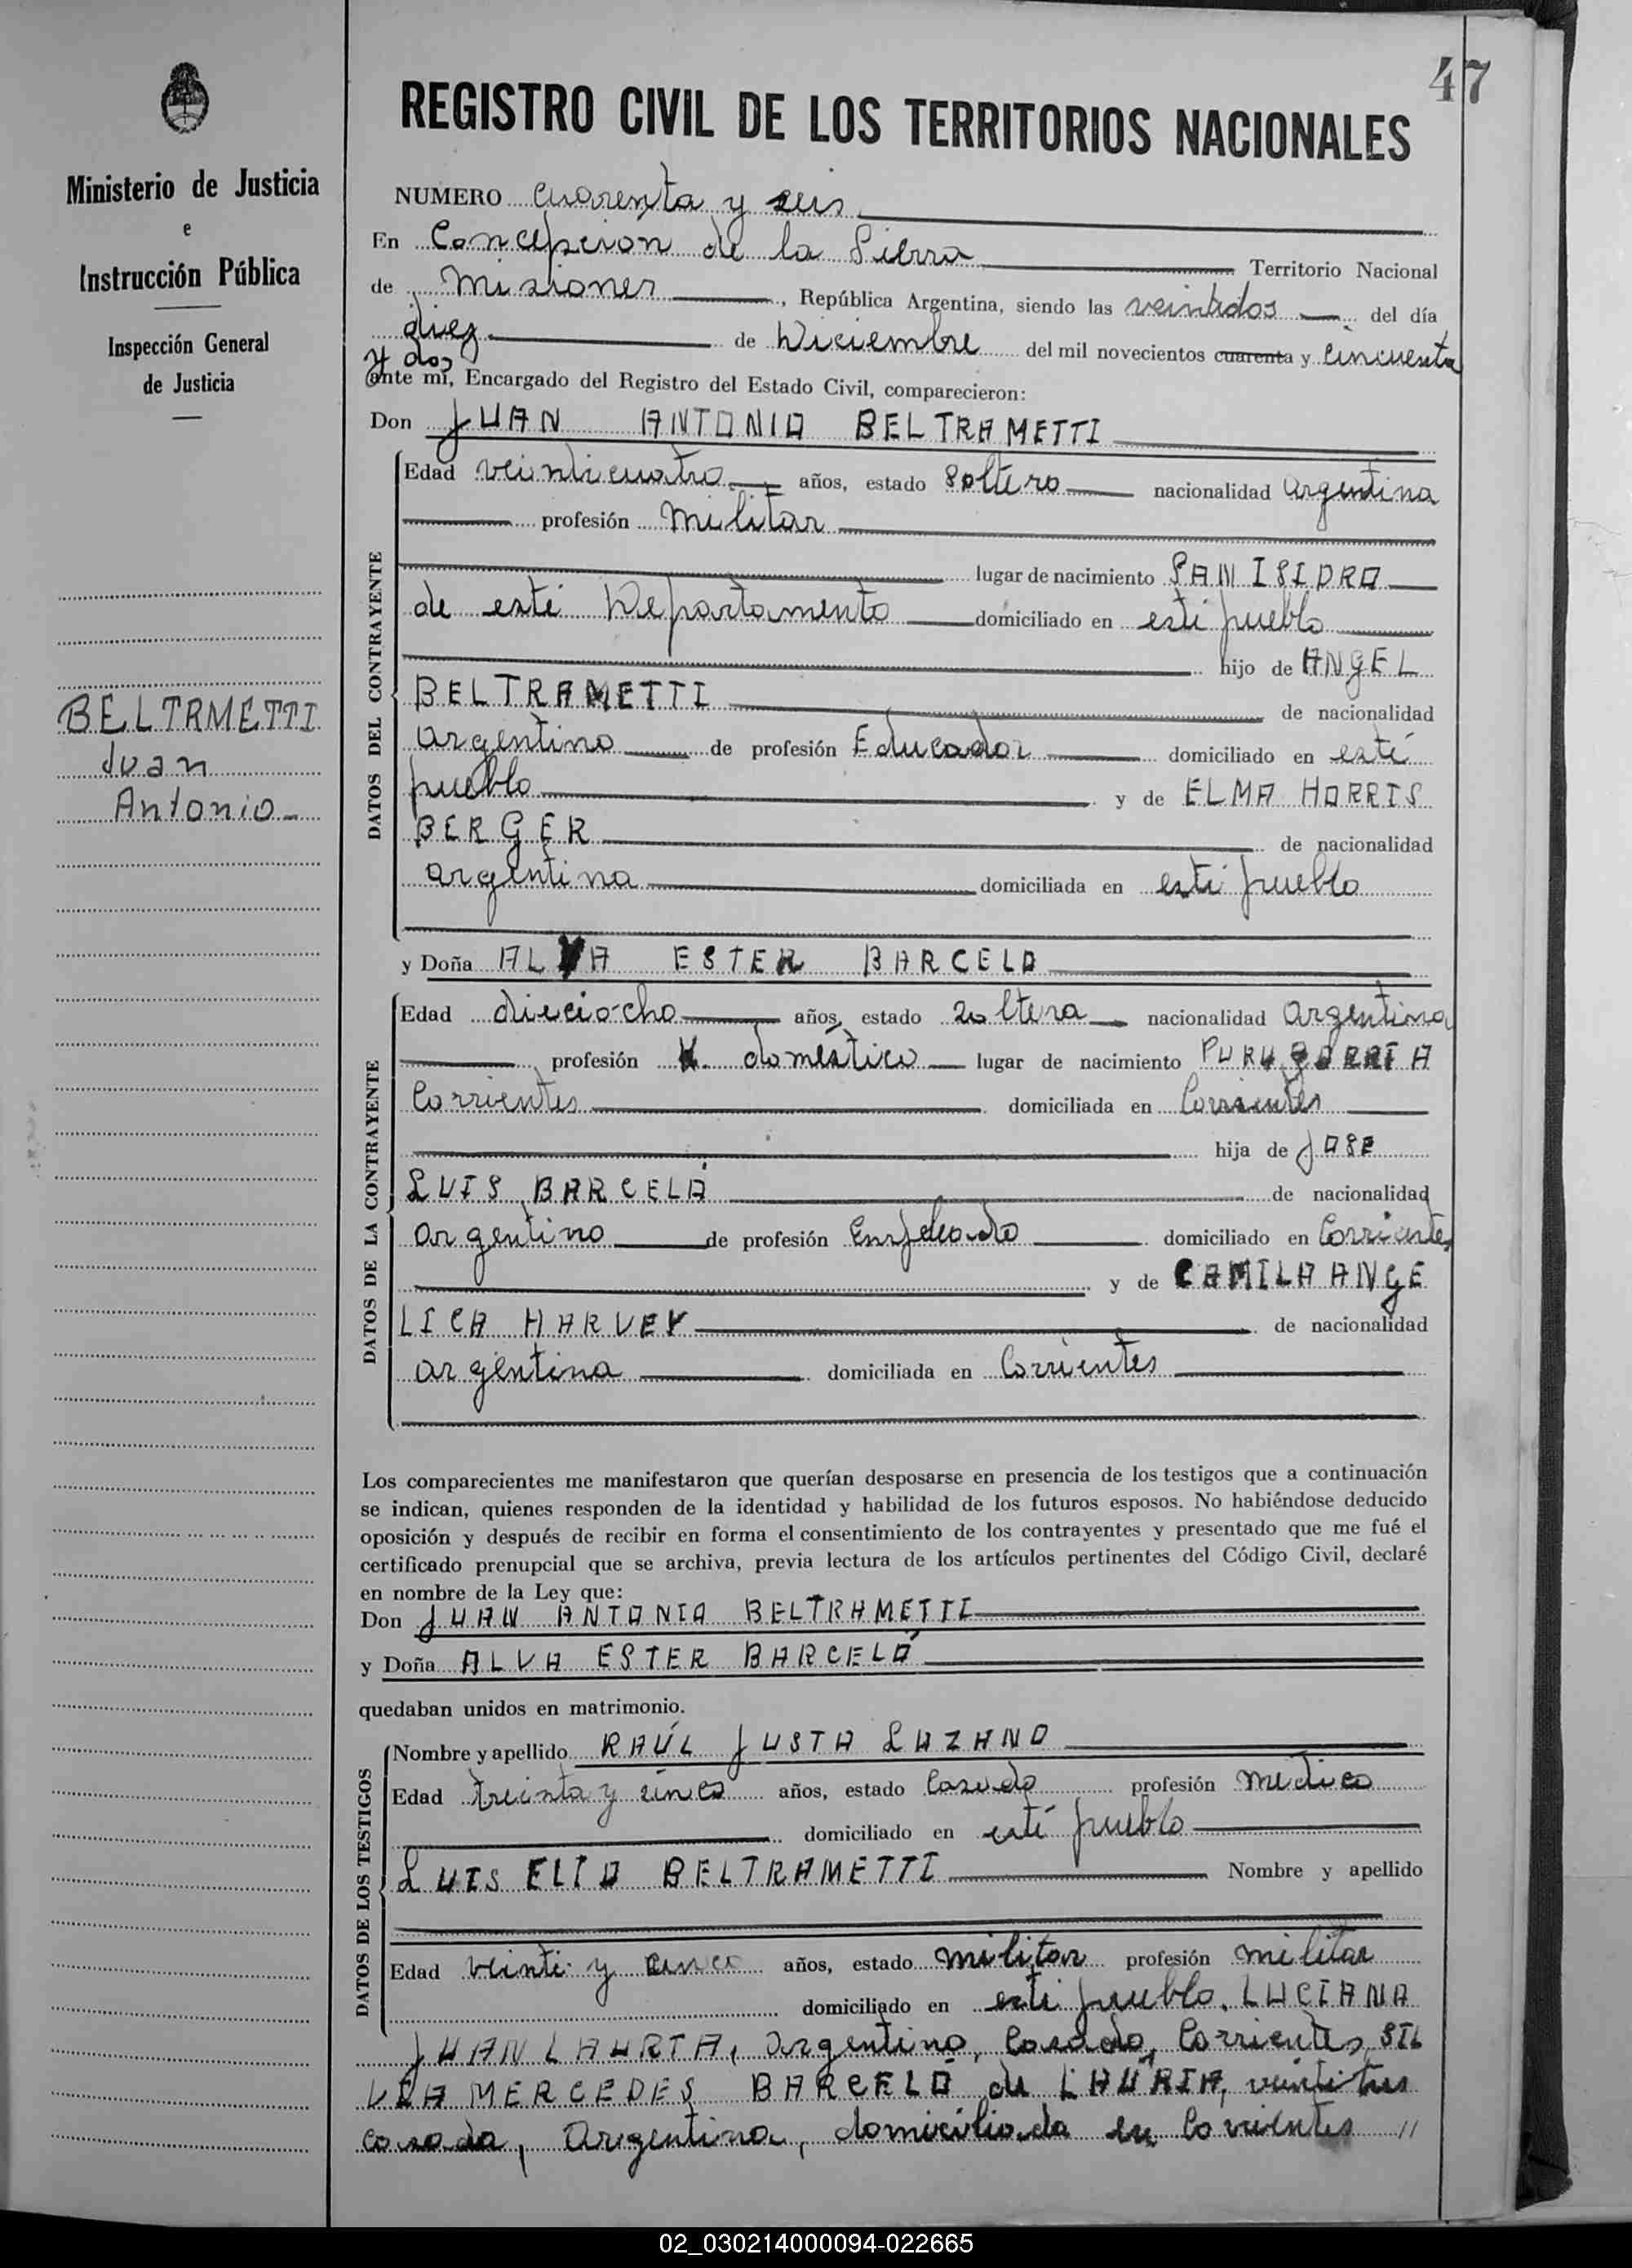 47
REGISTRO CIVIL DE LOS TERRITORIOS NACIONALES
Ministerio de Justicia
e
Instrucción Pública
Inspección General
de Justicia
BELTRMETTI
Juan
Antonio
NUMERO cuarenta y seis
En Concepcion de la Sierra Territorio Nacional
de Misiones, República Argentina, siendo las veintidos del día
diez de Diciembre del mil novecientos cuarenta y cincuenta
y dos
ante mí, Encargado del Registro del Estado Civil, comparecieron:
Don JUAN ANTONIO BELTRAMETTI
DATOS DEL CONTRAYENTE
Edad veinticuatro años, estado Soltero nacionalidad argentina
profesión militar
lugar de nacimiento SAN ISIDRO
de esté Departamento domiciliado en esté pueblo
hijo de ANGEL
BELTRAMETTI de nacionalidad
argentino de profesión Educador domiciliado en esté
pueblo y de ELMA HORRIS
BERGER de nacionalidad
argentina domiciliada en esté pueblo
y Doña ALVA ESTER BARCELO
DATOS DE LA CONTRAYENTE
Edad dieciocho años, estado soltera nacionalidad Argentina
profesión doméstico lugar de nacimiento
Corrientes domiciliada en Corrientes
hija de JOSE
LUIS BARCELÓ de nacionalidad
argentino de profesión Empleado domiciliado en Corrientes
y de CAMILA ANGE
LICA HARVEY de nacionalidad
argentina domiciliada en Corrientes
Los comparecientes me manifestaron que querían desposarse en presencia de los testigos que a continuación
se indican, quienes responden de la identidad y habilidad de los futuros esposos. No habiéndose deducido
oposición y después de recibir en forma el consentimiento de los contrayentes y presentado que me fué el
certificado prenupcial que se archiva, previa lectura de los artículos pertinentes del Código Civil, declaré
en nombre de la Ley que:
Don JUAN ANTONIO BELTRAMETTI
y Doña ALVA ESTER BARCELÓ
quedaban unidos en matrimonio.
DATOS DE LOS TESTIGOS
Nombre y apellido RAÚL JUSTO LOZANO
Edad treinta y cinco años, estado Casado profesión medico
domiciliado en esté pueblo
LUIS ELIO BELTRAMETTI Nombre y apellido
Edad veinti y cinco años, estado militar profesión militar
domiciliado en esté pueblo. LUCIANO
JUAN LAURIA, argentino, Casado, Corrientes, SIL
VIA MERCEDES BARCELÓ de LAURIA, veintitres
casada, Argentina, domiciliada en Corrientes //
02_030214000094-022665